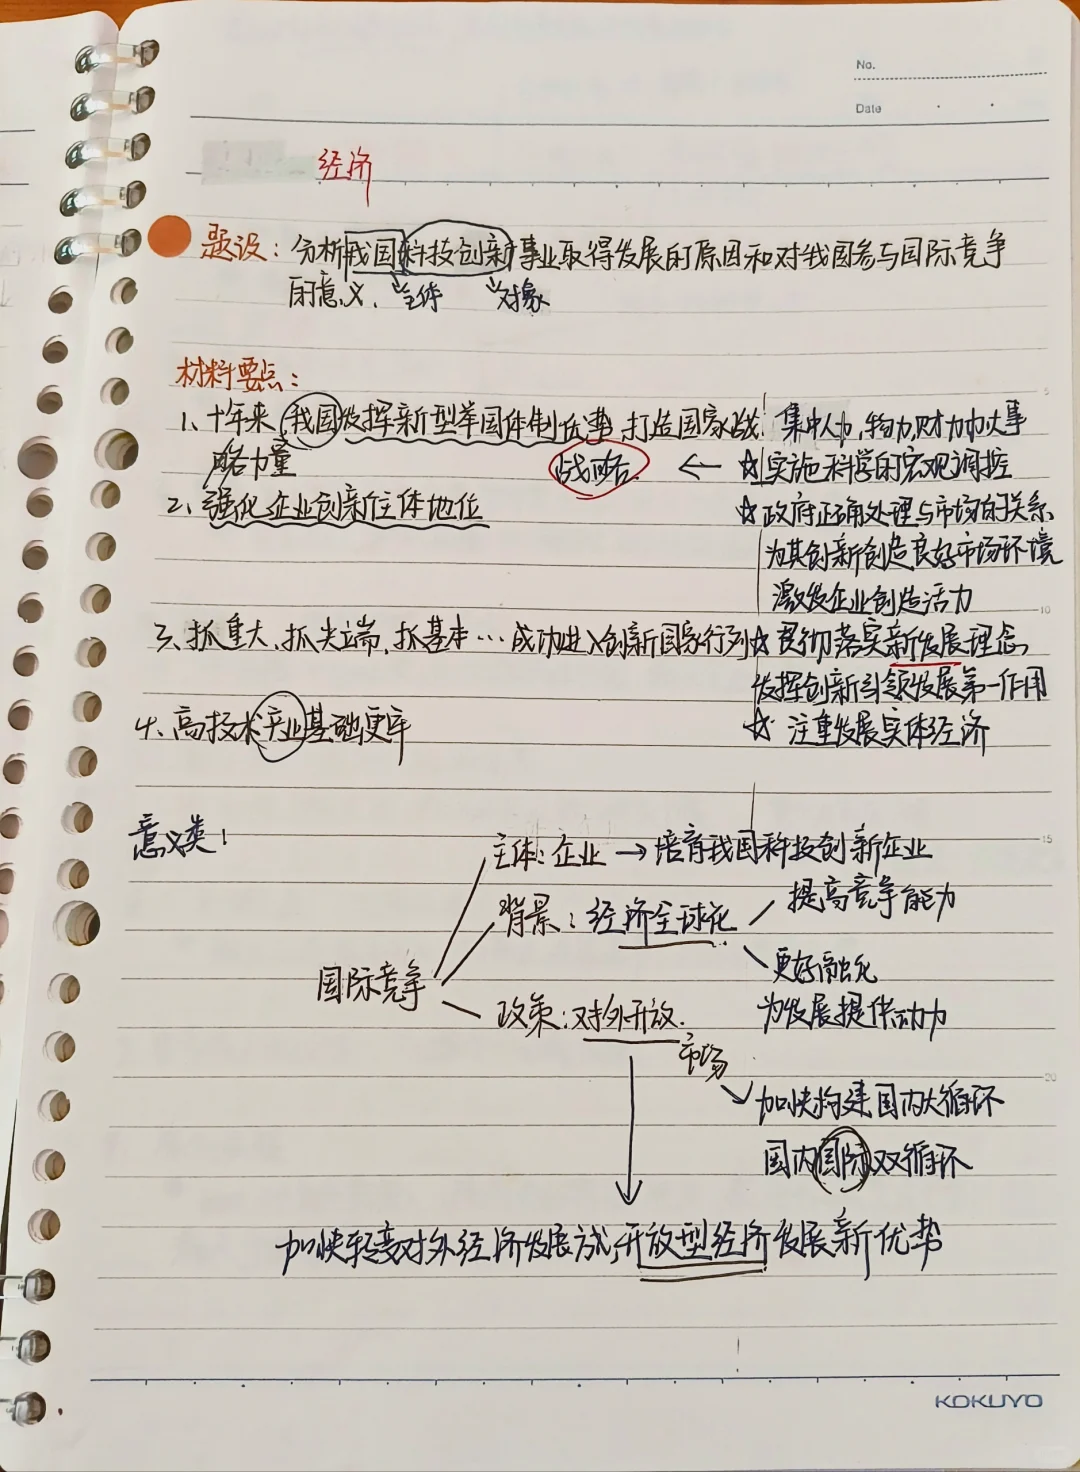 No.
Date
经济
题设：分析我国科技创新事业取得发展的原因和对我国参与国际竞争
的意义. 主体 对象
材料要点：
1、十年来 我国发挥新型举国体制优势, 打造国家战
略力量
战略 ← ☆实施科学的宏观调控
集中人力,物力,财力办大事
2、强化企业创新主体地位
☆政府正确处理与市场的关系
为其创新创造良好市场环境
激发企业创造活力
3、抓重大、抓尖端,抓基本…成功进入创新国家行列
☆贯彻落实新发展理念
发挥创新引领发展第一作用
4、高技术产业基础更牢
☆注重发展实体经济
意义类：
主体：企业 → 培育我国科技创新企业
背景：经济全球化
提高竞争能力
更好融化
为发展提供动力
国际竞争
政策：对外开放.
市场
加快构建国内大循环
国内国际双循环
加快转变对外经济发展方式,开放型经济发展新优势
5
10
15
20
KOKUYO